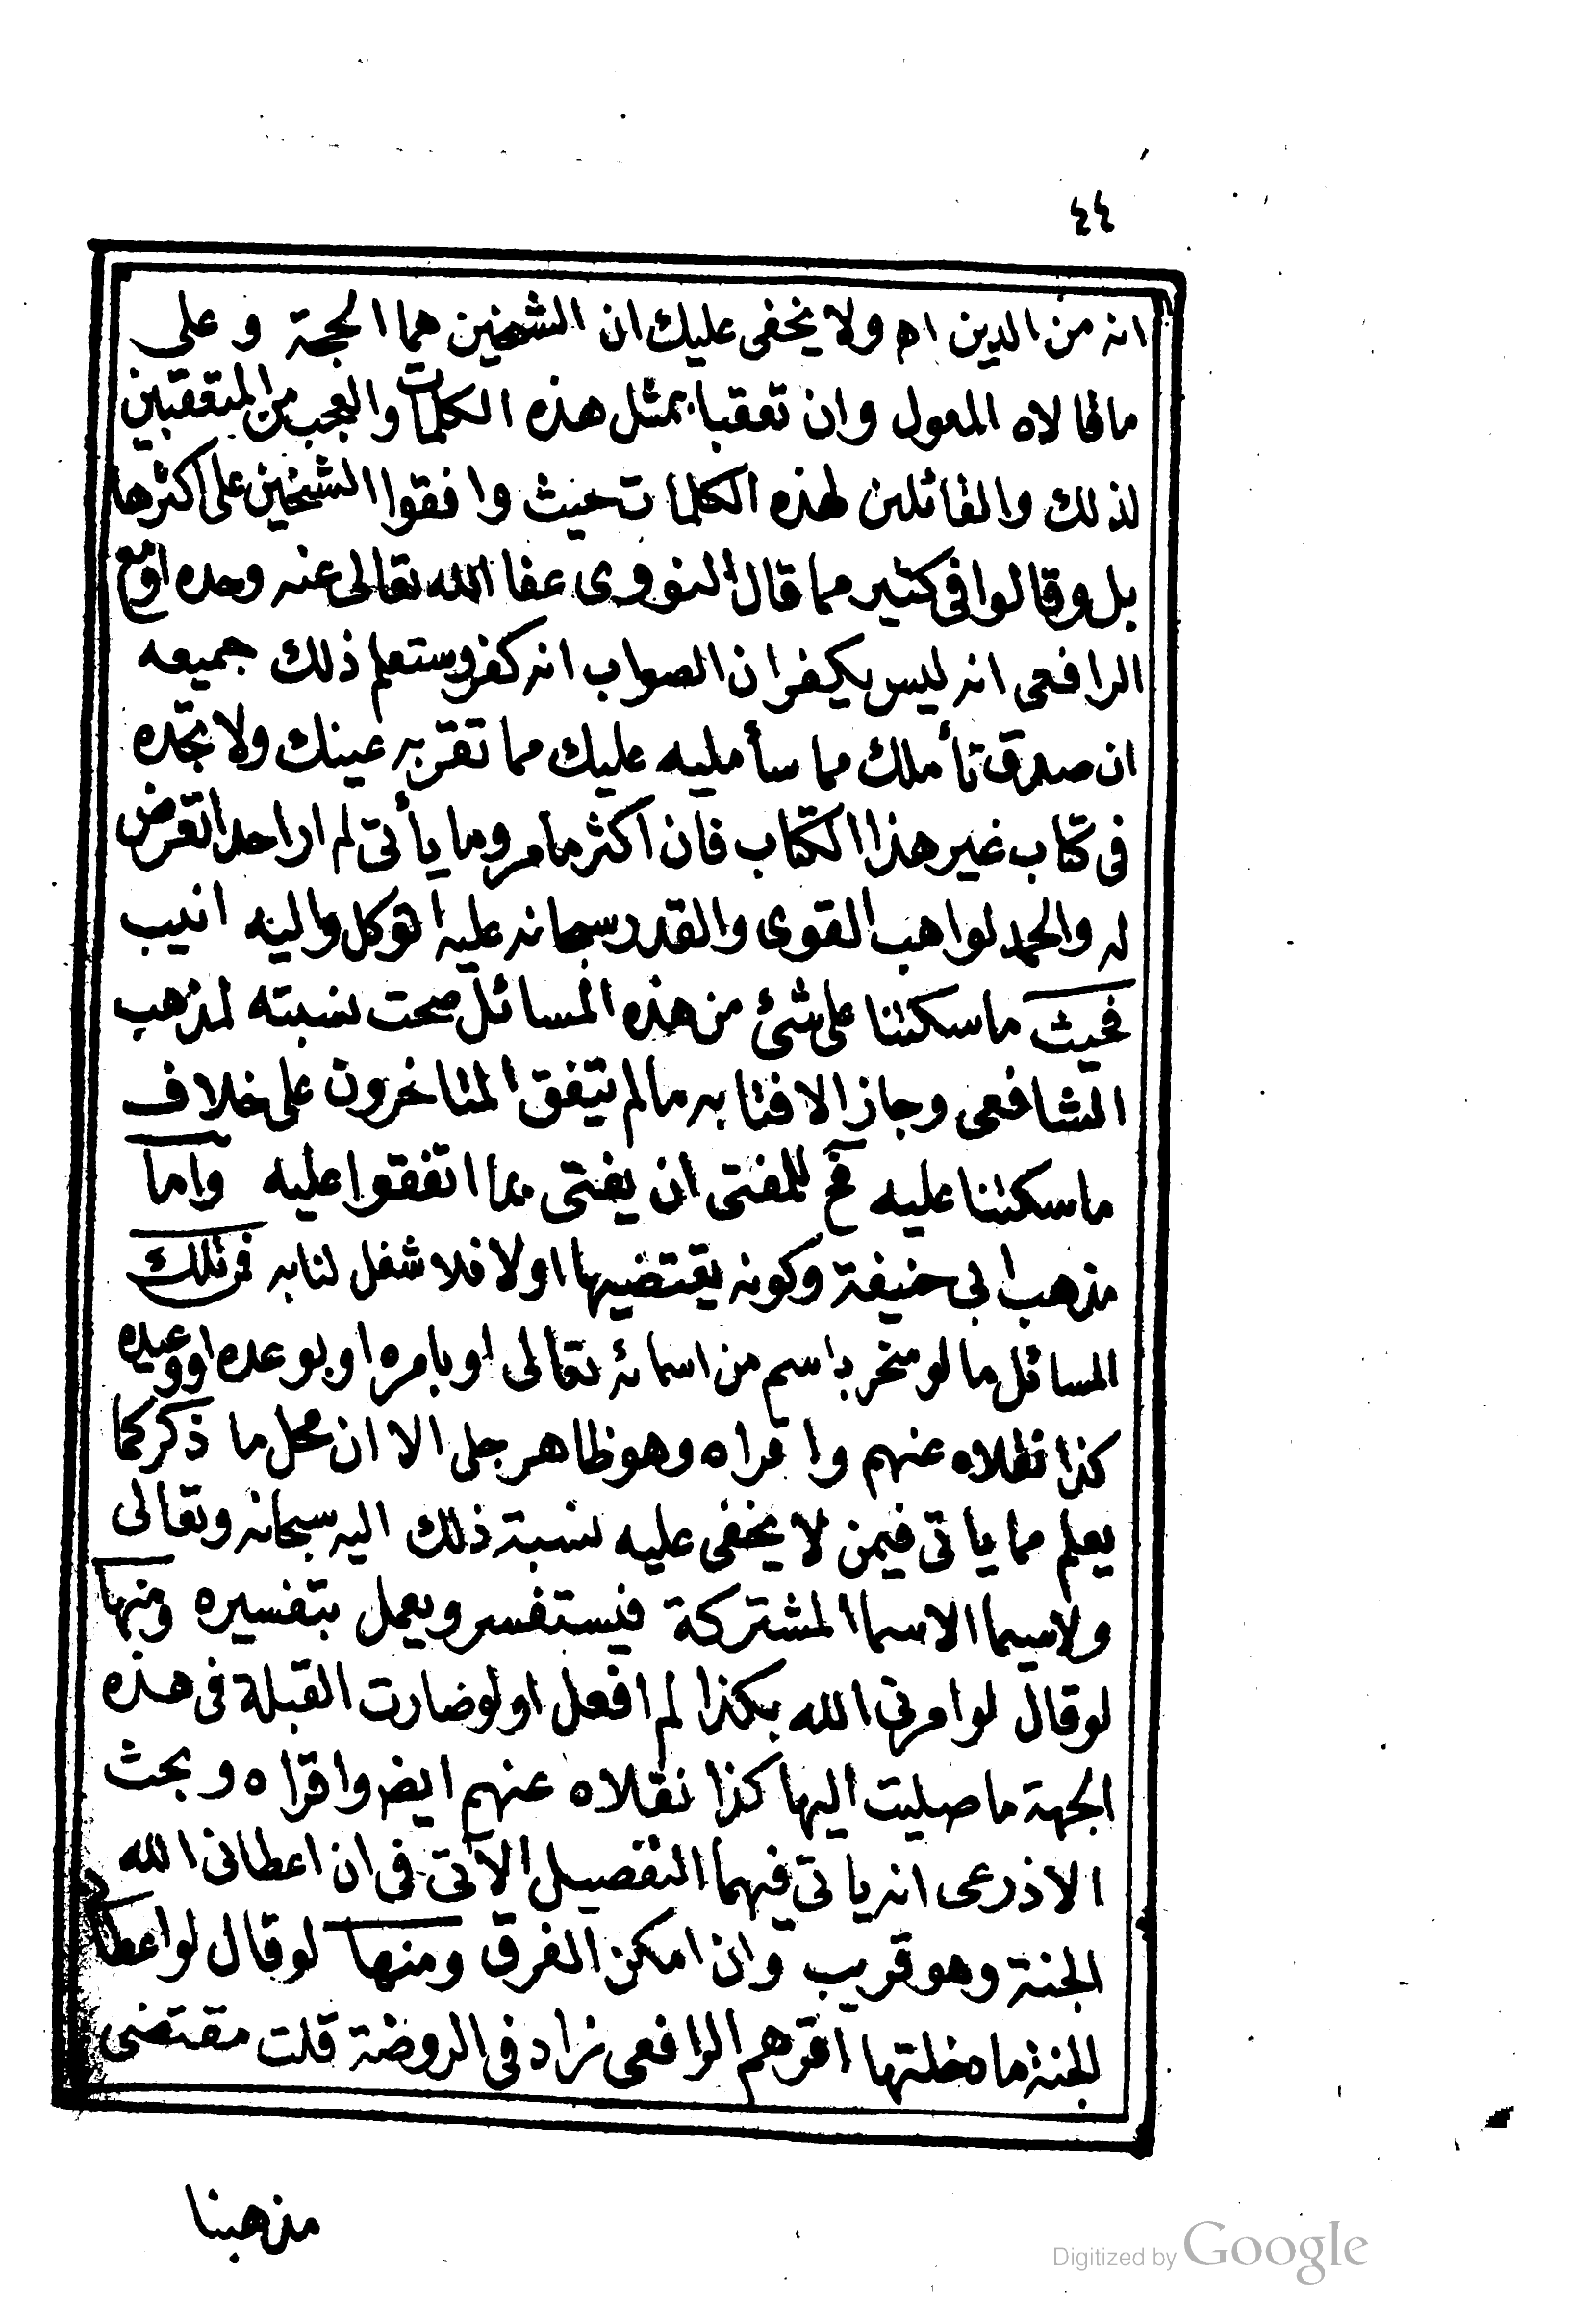 ٤٤
انه من الدين اه ولا يخفى عليك ان الشيخين هما الحجة وعلى
ما قالاه المعول وان تعقبا بمثل هذه الكلمات والعجب من المتعقبين
لذلك والقائلين لهذه الكلمات حيث وافقوا الشيخين على اكثرها
بل وقالوا في كثير مما قال النووى عفا الله تعالى عنه وحده او مع
الرافعى انه ليس بكفر ان الصواب انه كفر وستعلم ذلك جميعه
ان صدق تأملك مما سأمليه عليك مما تقر به عينك ولا تجده
فى كتاب غير هذا الكتاب فان اكثر ما مر وما يأتى لم ار احدا تعرض
له والحمد لواهب القوى والقدر سبحانه عليه اتوكل واليه انيب
فحيث ما سكتنا على شئ من هذه المسائل صحت نسبته لمذهب
الشافعى وجاز الافتا به ما لم يتفق المتاخرون على خلاف
ما سكتنا عليه فح للمفتى ان يفتى بما اتفقوا عليه واما
مذهب ابى حنيفة وكونه يقتضيها اولا فلا شغل لنا به فمن تلك
المسائل ما لو سخر باسم من اسمائه تعالى او بامره او بوعده او وعيده
كذا نقلاه عنهم واقراه وهو ظاهر جلى الا ان محل ما ذكر كما
يعلم مما ياتى فيمن لا يخفى عليه نسبة ذلك اليه سبحانه وتعالى
ولاسيما الاسما المشتركة فيستفسر ويعمل بتفسيره ومنها
لو قال لو امرنى الله بكذا لم افعل او لو صارت القبلة فى هذه
الجهة ما صليت اليها كذا نقلاه عنهم ايض واقراه وبحث
الاذرعى انه ياتى فيهما التفصيل الآتى فى ان اعطانى الله
الجنة وهو قريب وان امكن الفرق ومنها لو قال لو اعطا
الجنة ما دخلتها اقرهم الرافعى زاد فى الروضة قلت مقتضى
مذهبنا
Digitized by Google